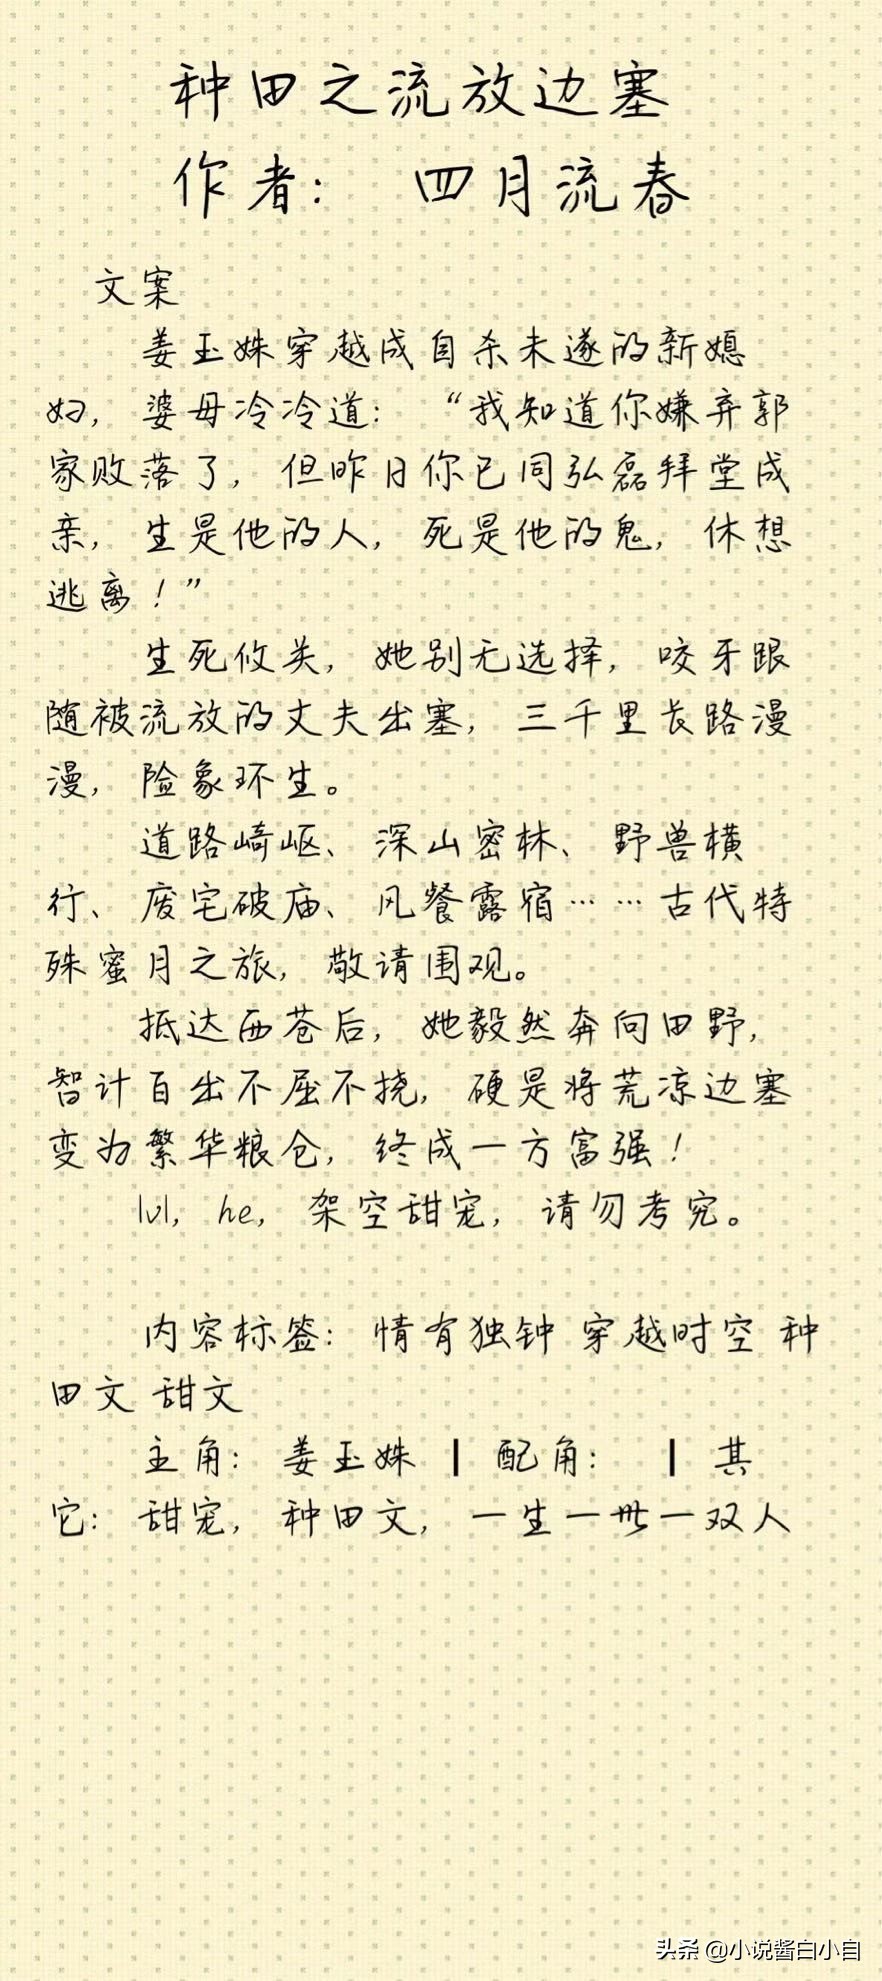 种田之流放边塞
作者： 四月流春
文案
姜玉姝穿越成自杀未遂的新媳
妇，婆母冷冷道：“我知道你嫌弃郭
家败落了，但昨日你已同弘磊拜堂成
亲，生是他的人，死是他的鬼，休想
逃离！”
生死攸关，她别无选择，咬牙跟
随被流放的丈夫出塞，三千里长路漫
漫，险象环生。
道路崎岖、深山密林、野兽横
行、废宅破庙、风餐露宿……古代特
殊蜜月之旅，敬请围观。
抵达西苍后，她毅然奔向田野，
智计百出不屈不挠，硬是将荒凉边塞
变为繁华粮仓，终成一方富强！
1v1，he，架空甜宠，请勿考究。
内容标签：情有独钟 穿越时空 种
田文 甜文
主角：姜玉姝 ┃ 配角： ┃ 其
它：甜宠，种田文，一生一世一双人
头条 @小说酱白小白